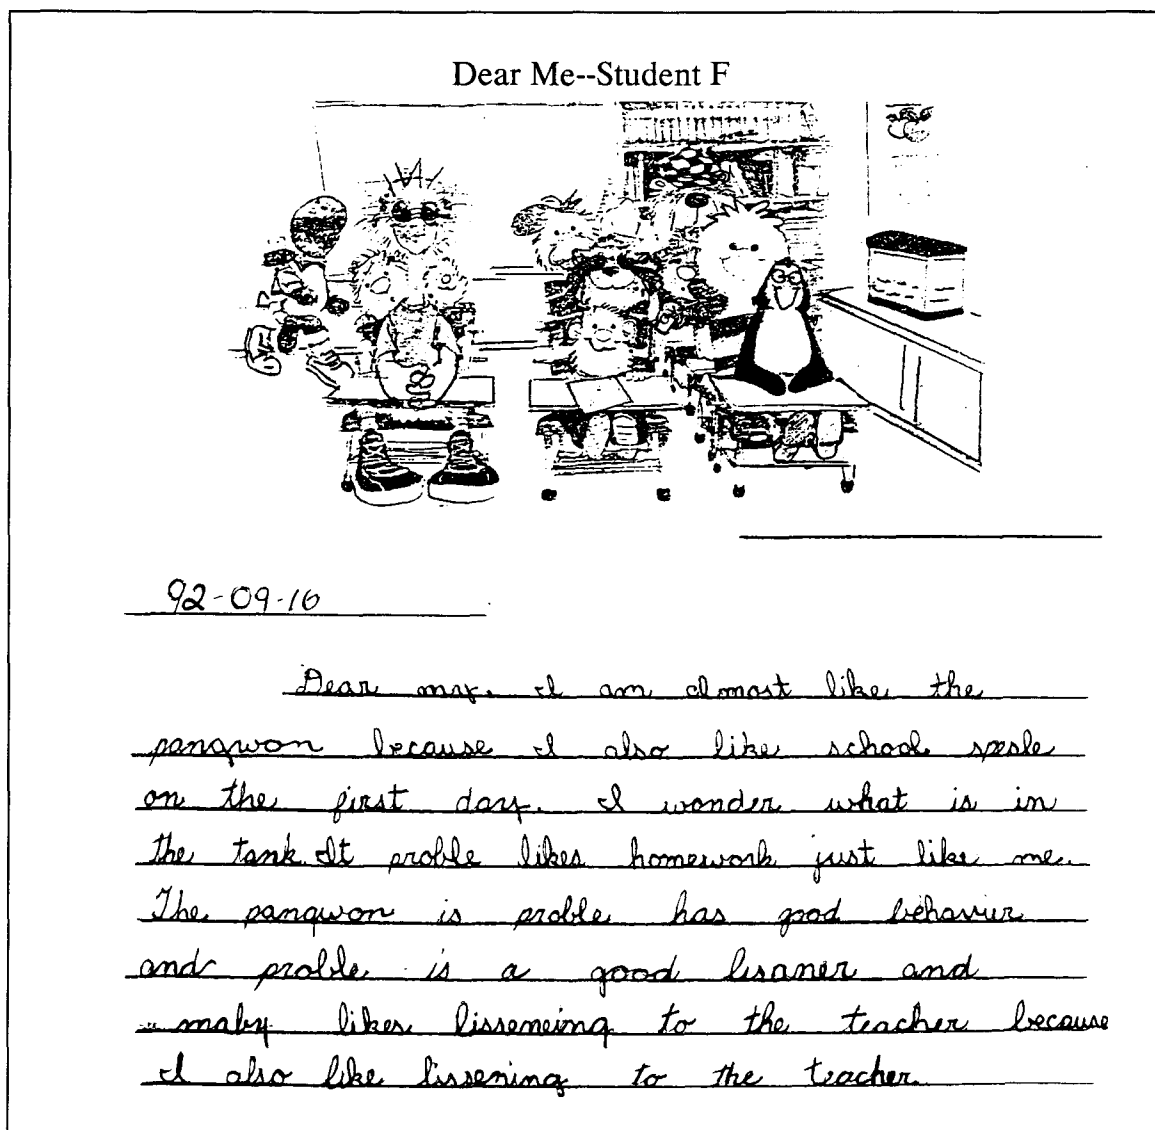 Dear Me--Student F
92-09-16
Dear me. I am almost like the
pangwon because I also like school spesle
on the first day. I wonder what is in
the tank. It proble likes homework just like me.
The pangwon is proble has good behavior
and proble is a good lisaner and
maby likes lisseneing to the teacher because
I also like lissening to the teacher.